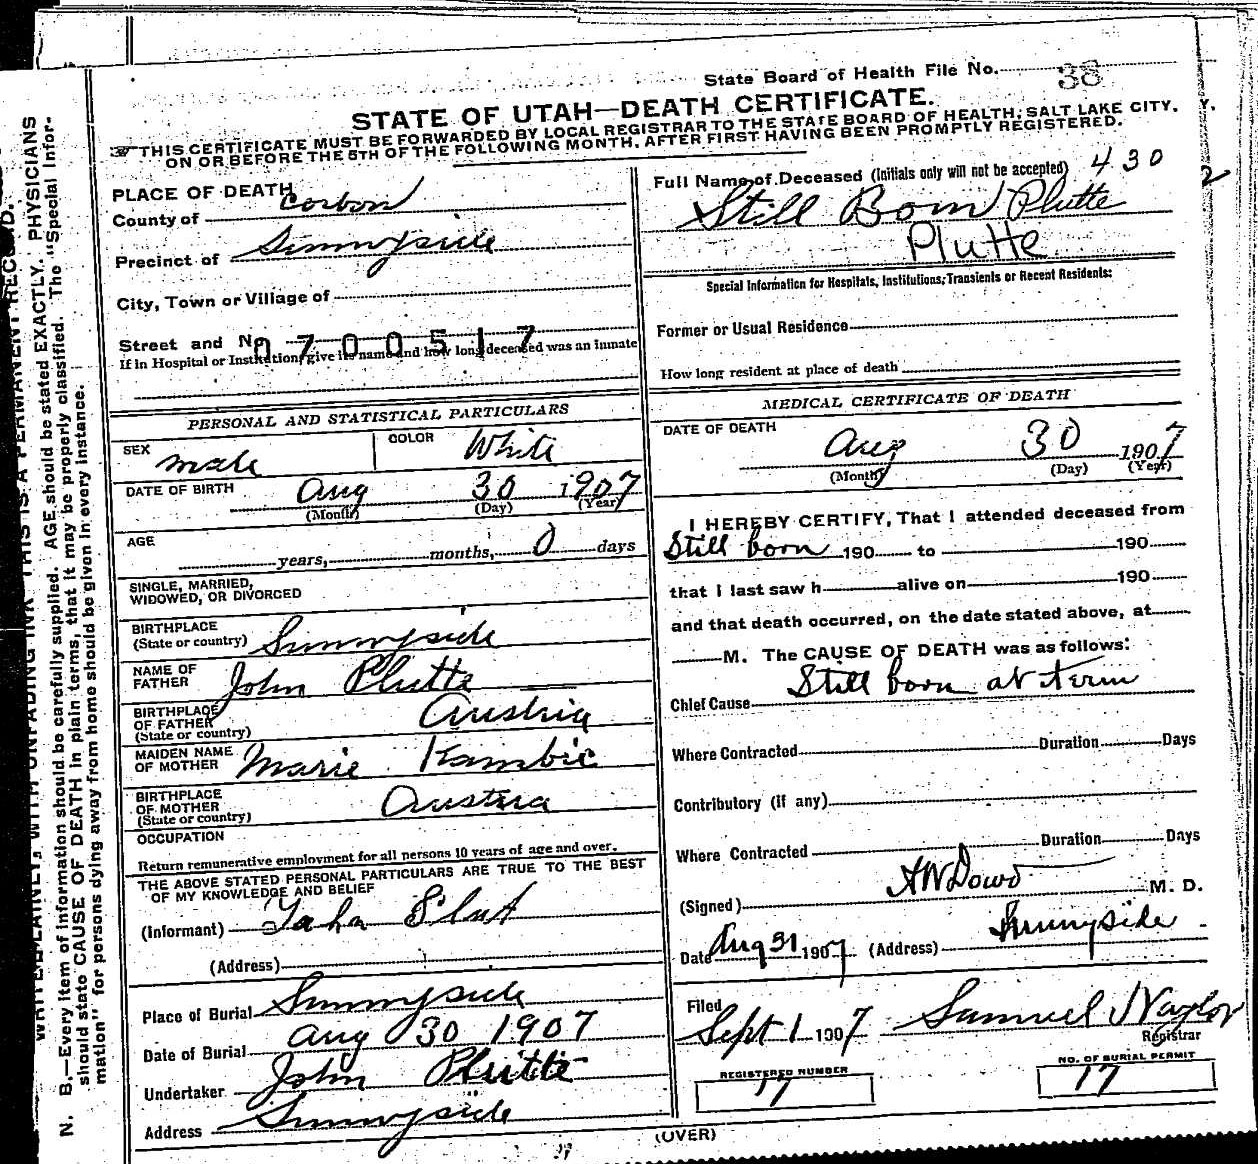 State Board of Health File No. 38
STATE OF UTAH—DEATH CERTIFICATE.
THIS CERTIFICATE MUST BE FORWARDED BY LOCAL REGISTRAR TO THE STATE BOARD OF HEALTH, SALT LAKE CITY,
ON OR BEFORE THE 5TH OF THE FOLLOWING MONTH, AFTER FIRST HAVING BEEN PROMPTLY REGISTERED.
PLACE OF DEATH
County of Corbon
Precinct of Sunnyside
City, Town or Village of
Street and No. 700517
If in Hospital or Institution, give its name and how long deceased was an inmate
PERSONAL AND STATISTICAL PARTICULARS
SEX male COLOR White
DATE OF BIRTH Aug 30 1907
(Month) (Day) (Year)
AGE years, months, 0 days
SINGLE, MARRIED,
WIDOWED, OR DIVORCED
BIRTHPLACE
(State or country) Sunnyside
NAME OF
FATHER John Plutte
BIRTHPLACE
OF FATHER
(State or country) Austria
MAIDEN NAME
OF MOTHER Marie Kambic
BIRTHPLACE
OF MOTHER
(State or country) Austria
OCCUPATION
Return remunerative employment for all persons 10 years of age and over.
THE ABOVE STATED PERSONAL PARTICULARS ARE TRUE TO THE BEST
OF MY KNOWLEDGE AND BELIEF
(Informant)
(Address)
Place of Burial Sunnyside
Date of Burial Aug 30 1907
Undertaker John Plutte
Address Sunnyside
Full Name of Deceased (Initials only will not be accepted) 430
Still Born Plutte
Plutte
Special Information for Hospitals, Institutions, Transients or Recent Residents:
Former or Usual Residence
How long resident at place of death
MEDICAL CERTIFICATE OF DEATH
DATE OF DEATH
Aug 30 1907
(Month) (Day) (Year)
I HEREBY CERTIFY, That I attended deceased from
Still born 190 to 190
that I last saw h alive on 190
and that death occurred, on the date stated above, at
M. The CAUSE OF DEATH was as follows:
Chief Cause Still born at term
Where Contracted Duration Days
Contributory (if any)
Where Contracted Duration Days
(Signed) AW Dowd M. D.
Date Aug 31 1907 (Address) Sunnyside
Filed
Sept 1 1907 Samuel Naylor
Registrar
REGISTERED NUMBER
17
NO. OF BURIAL PERMIT
17
(OVER)
WRITE PLAINLY, WITH UNFADING INK—THIS IS A PERMANENT RECORD.
N. B.—Every item of information should be carefully supplied. AGE should be stated EXACTLY. PHYSICIANS
should state CAUSE OF DEATH in plain terms, that it may be properly classified. The "Special Infor-
mation" for persons dying away from home should be given in every instance.